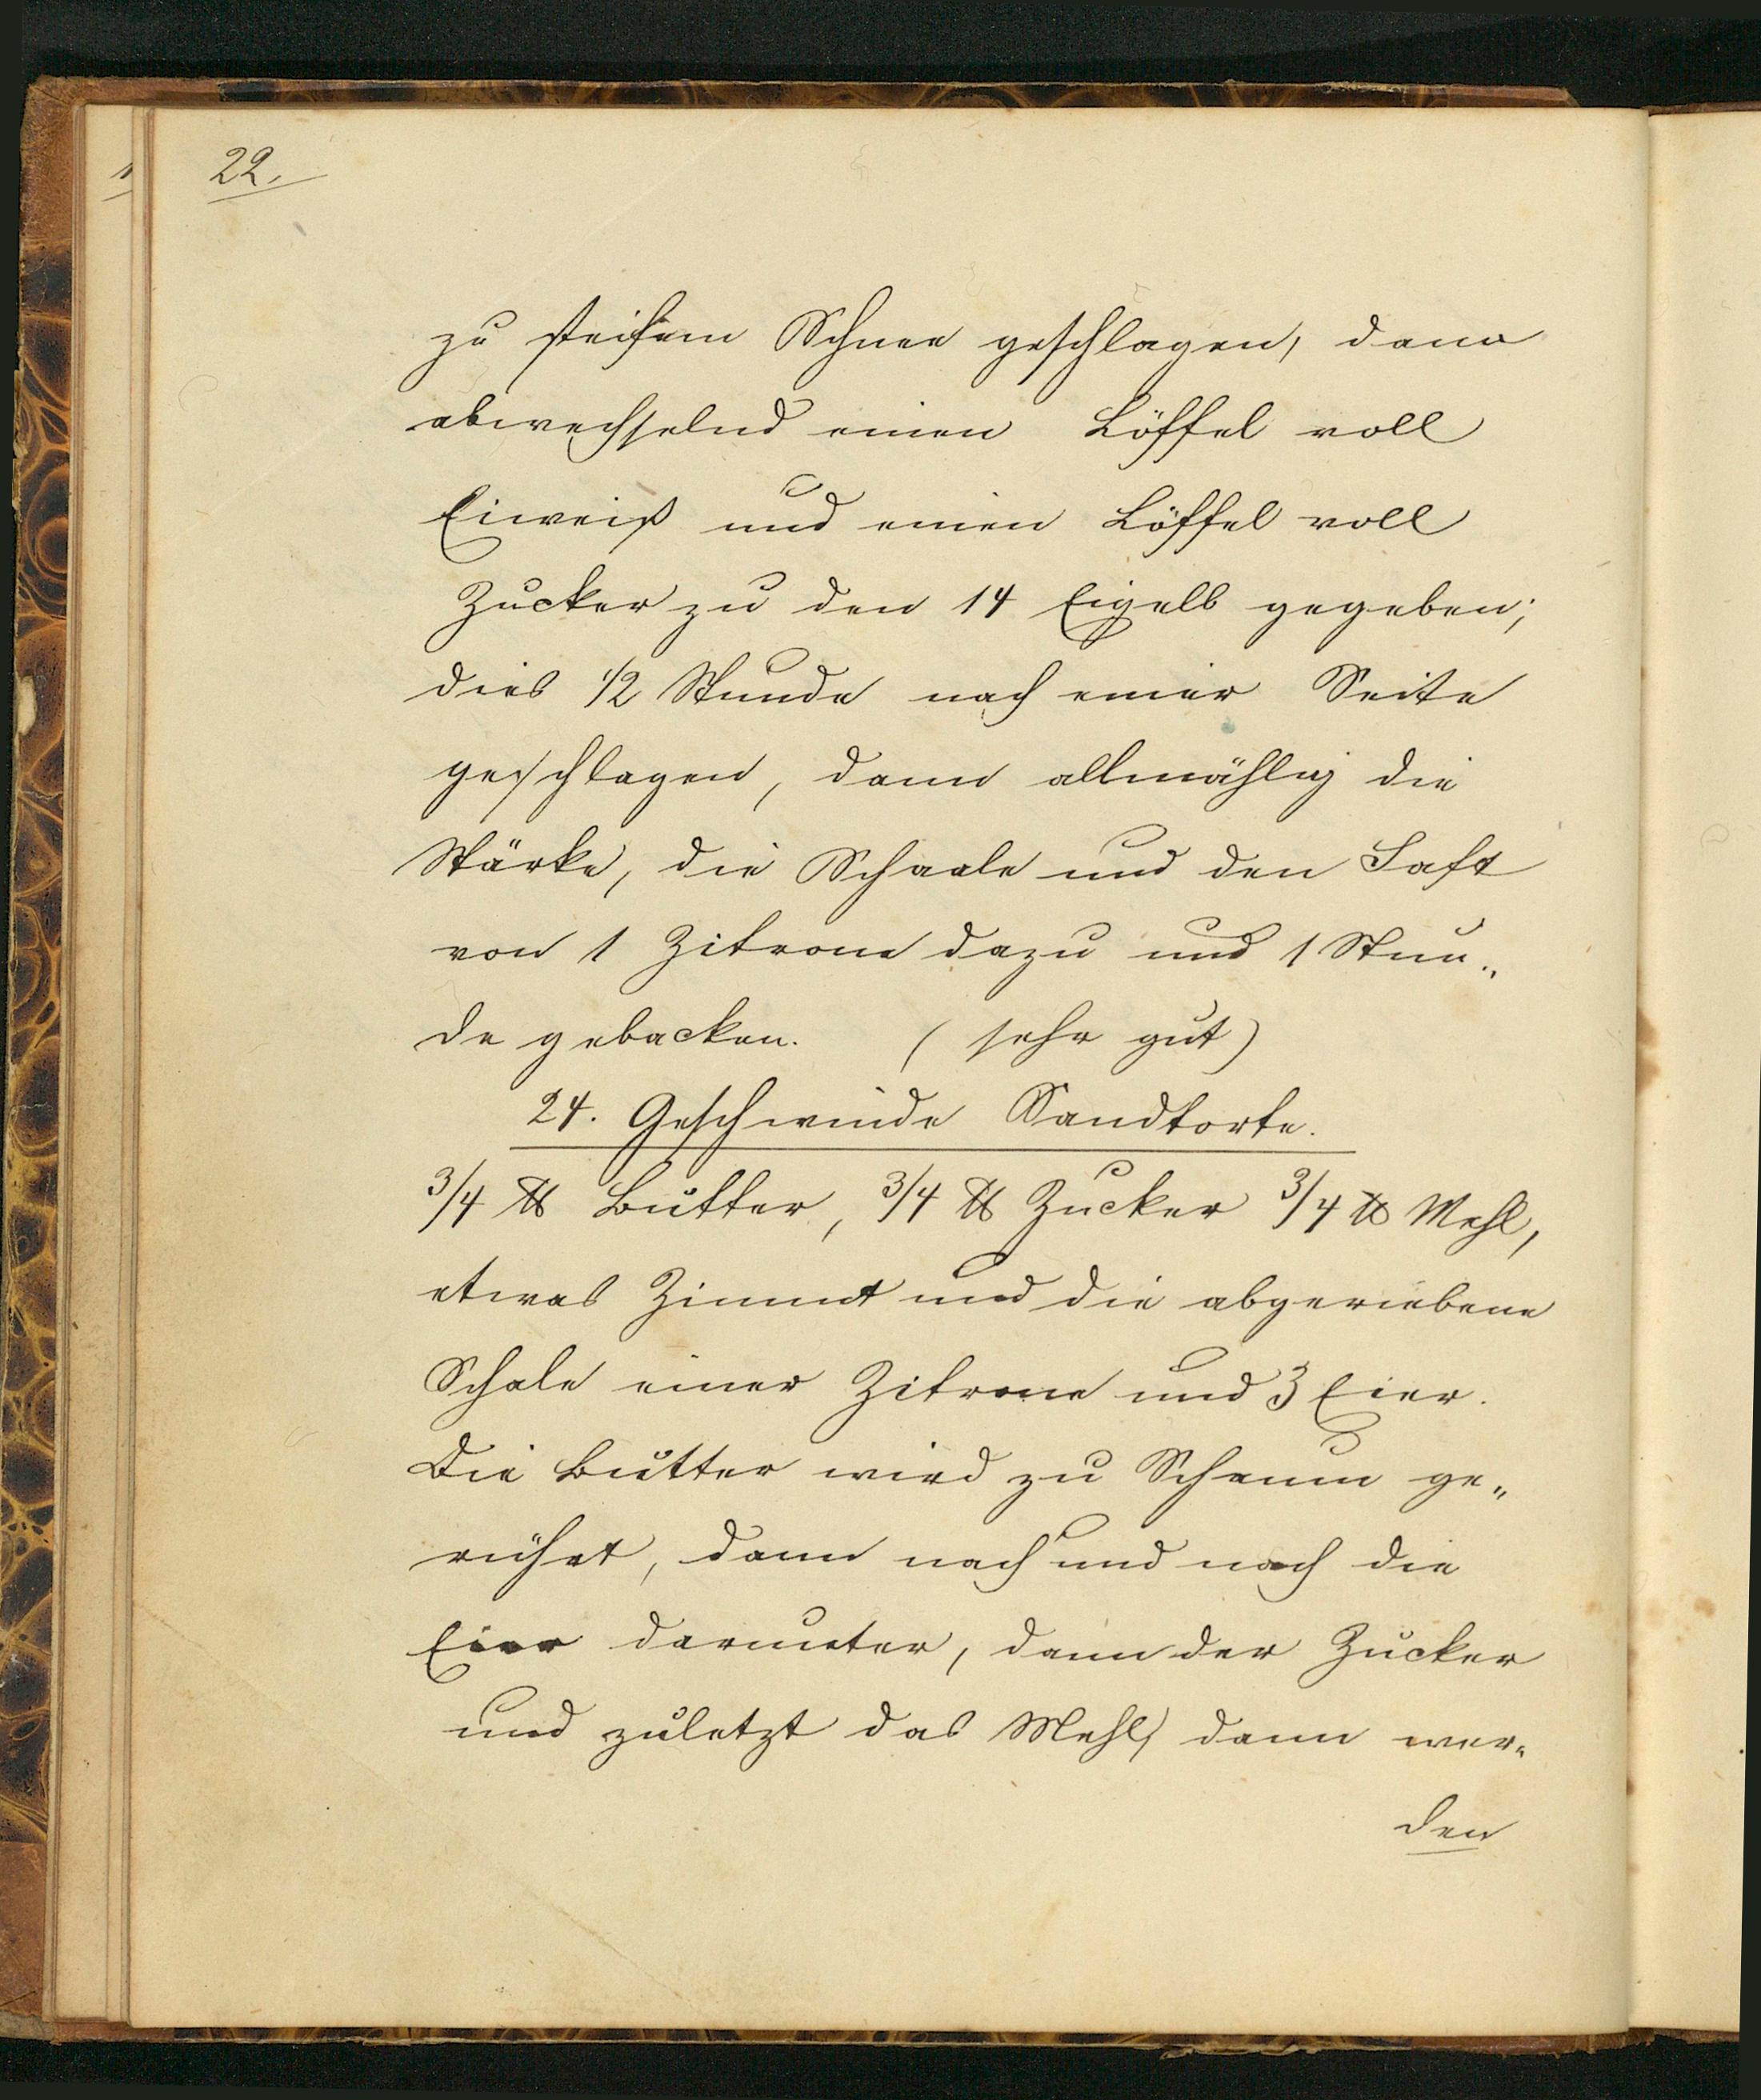 22.
zu steifem Schnee geschlagen, dann
abwechselnd einen Löffel voll
Eiweiß und einen Löffel voll
Zucker zu den 14 Eigelb gegeben;
dies 1/2 Stunde nach einer Seite
geschlagen, dann allmählig die
Stärke, die Schaale und den Saft
von 1 Zitrone dazu und 1 Stun„
de gebacken. (sehr gut)
24. Geschwinde Sandtorte.
3/4 ℔ Butter, 3/4 ℔ Zucker 3/4 ℔ Mehl,
etwas Zimmt und die abgeriebene
Schale einer Zitrone und 3 Eier.
Die Butter wird zu Schaum ge„
rührt, dann nach und nach die
Eier darunter, dann der Zucker
und zuletzt das Mehl, dann wer„
den